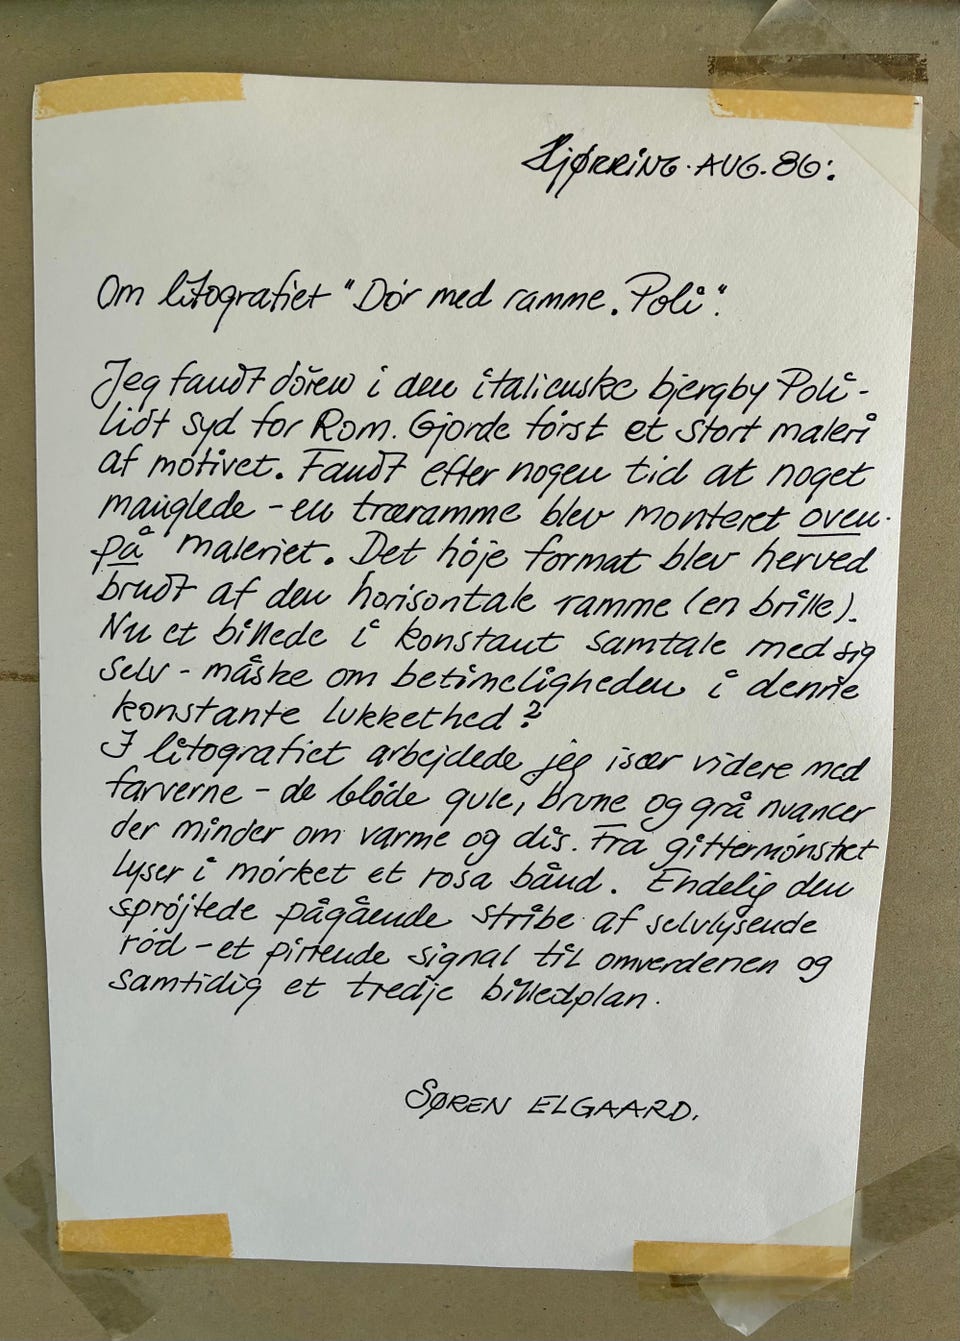 Hjørring. Aug. 86:
Om litografiet "Dør med ramme. Poli".
Jeg fandt døren i den italienske bjergby Poli -
lidt syd for Rom. Gjorde først et stort maleri
af motivet. Fandt efter nogen tid at noget
manglede - en træramme blev monteret oven-
på maleriet. Det høje format blev herved
brudt af den horisontale ramme (en brille).
Nu et billede i konstant samtale med sig
selv - måske om betimeligheden i denne
konstante lukkethed?
I litografiet arbejdede jeg især videre med
farverne - de bløde gule, brune og grå nuancer
der minder om varme og dis. Fra gittermønstret
lyser i mørket et rosa bånd. Endelig den
sprøjtede pågående stribe af selvlysende
rød - et pirrende signal til omverdenen og
samtidig et tredje billedplan.
Søren Elgaard.